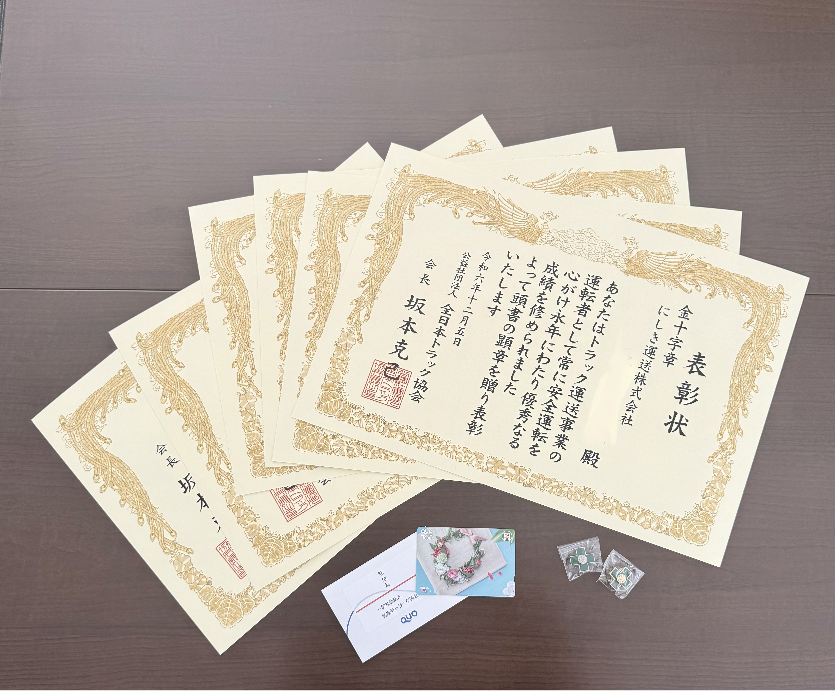 表彰状
金十字章
にしき運送株式会社
殿
あなたはトラック運送事業の
運転者として常に安全運転を
心がけ永年にわたり優秀なる
成績を修められました
よって頭書の顕章を贈り表彰
いたします
令和六年十二月五日
公益社団法人 全日本トラック協会
会長 坂本克己
会
会長 坂本
QUO